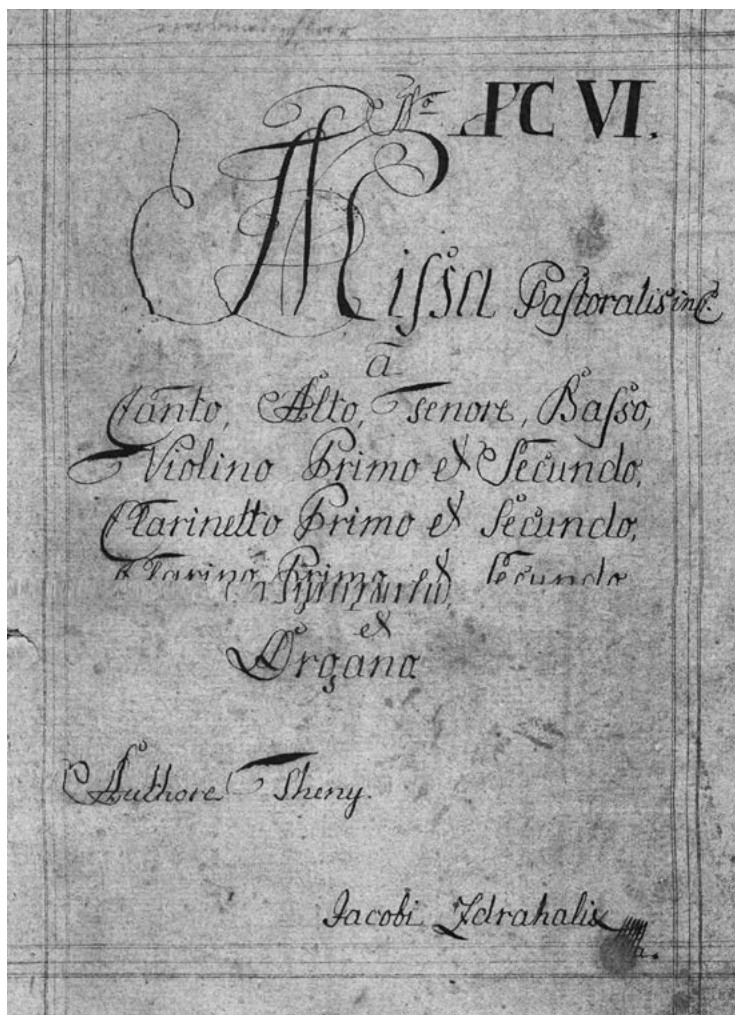 No. PC VI.
Missa Pastoralis in C.
a
Canto, Alto, Tenore, Basso,
Violino Primo et Secundo,
Clarinetto Primo et Secundo,
Clarino Primo et Secundo
et
Organo
Authore Theny.
Jacobi Zdrahalis